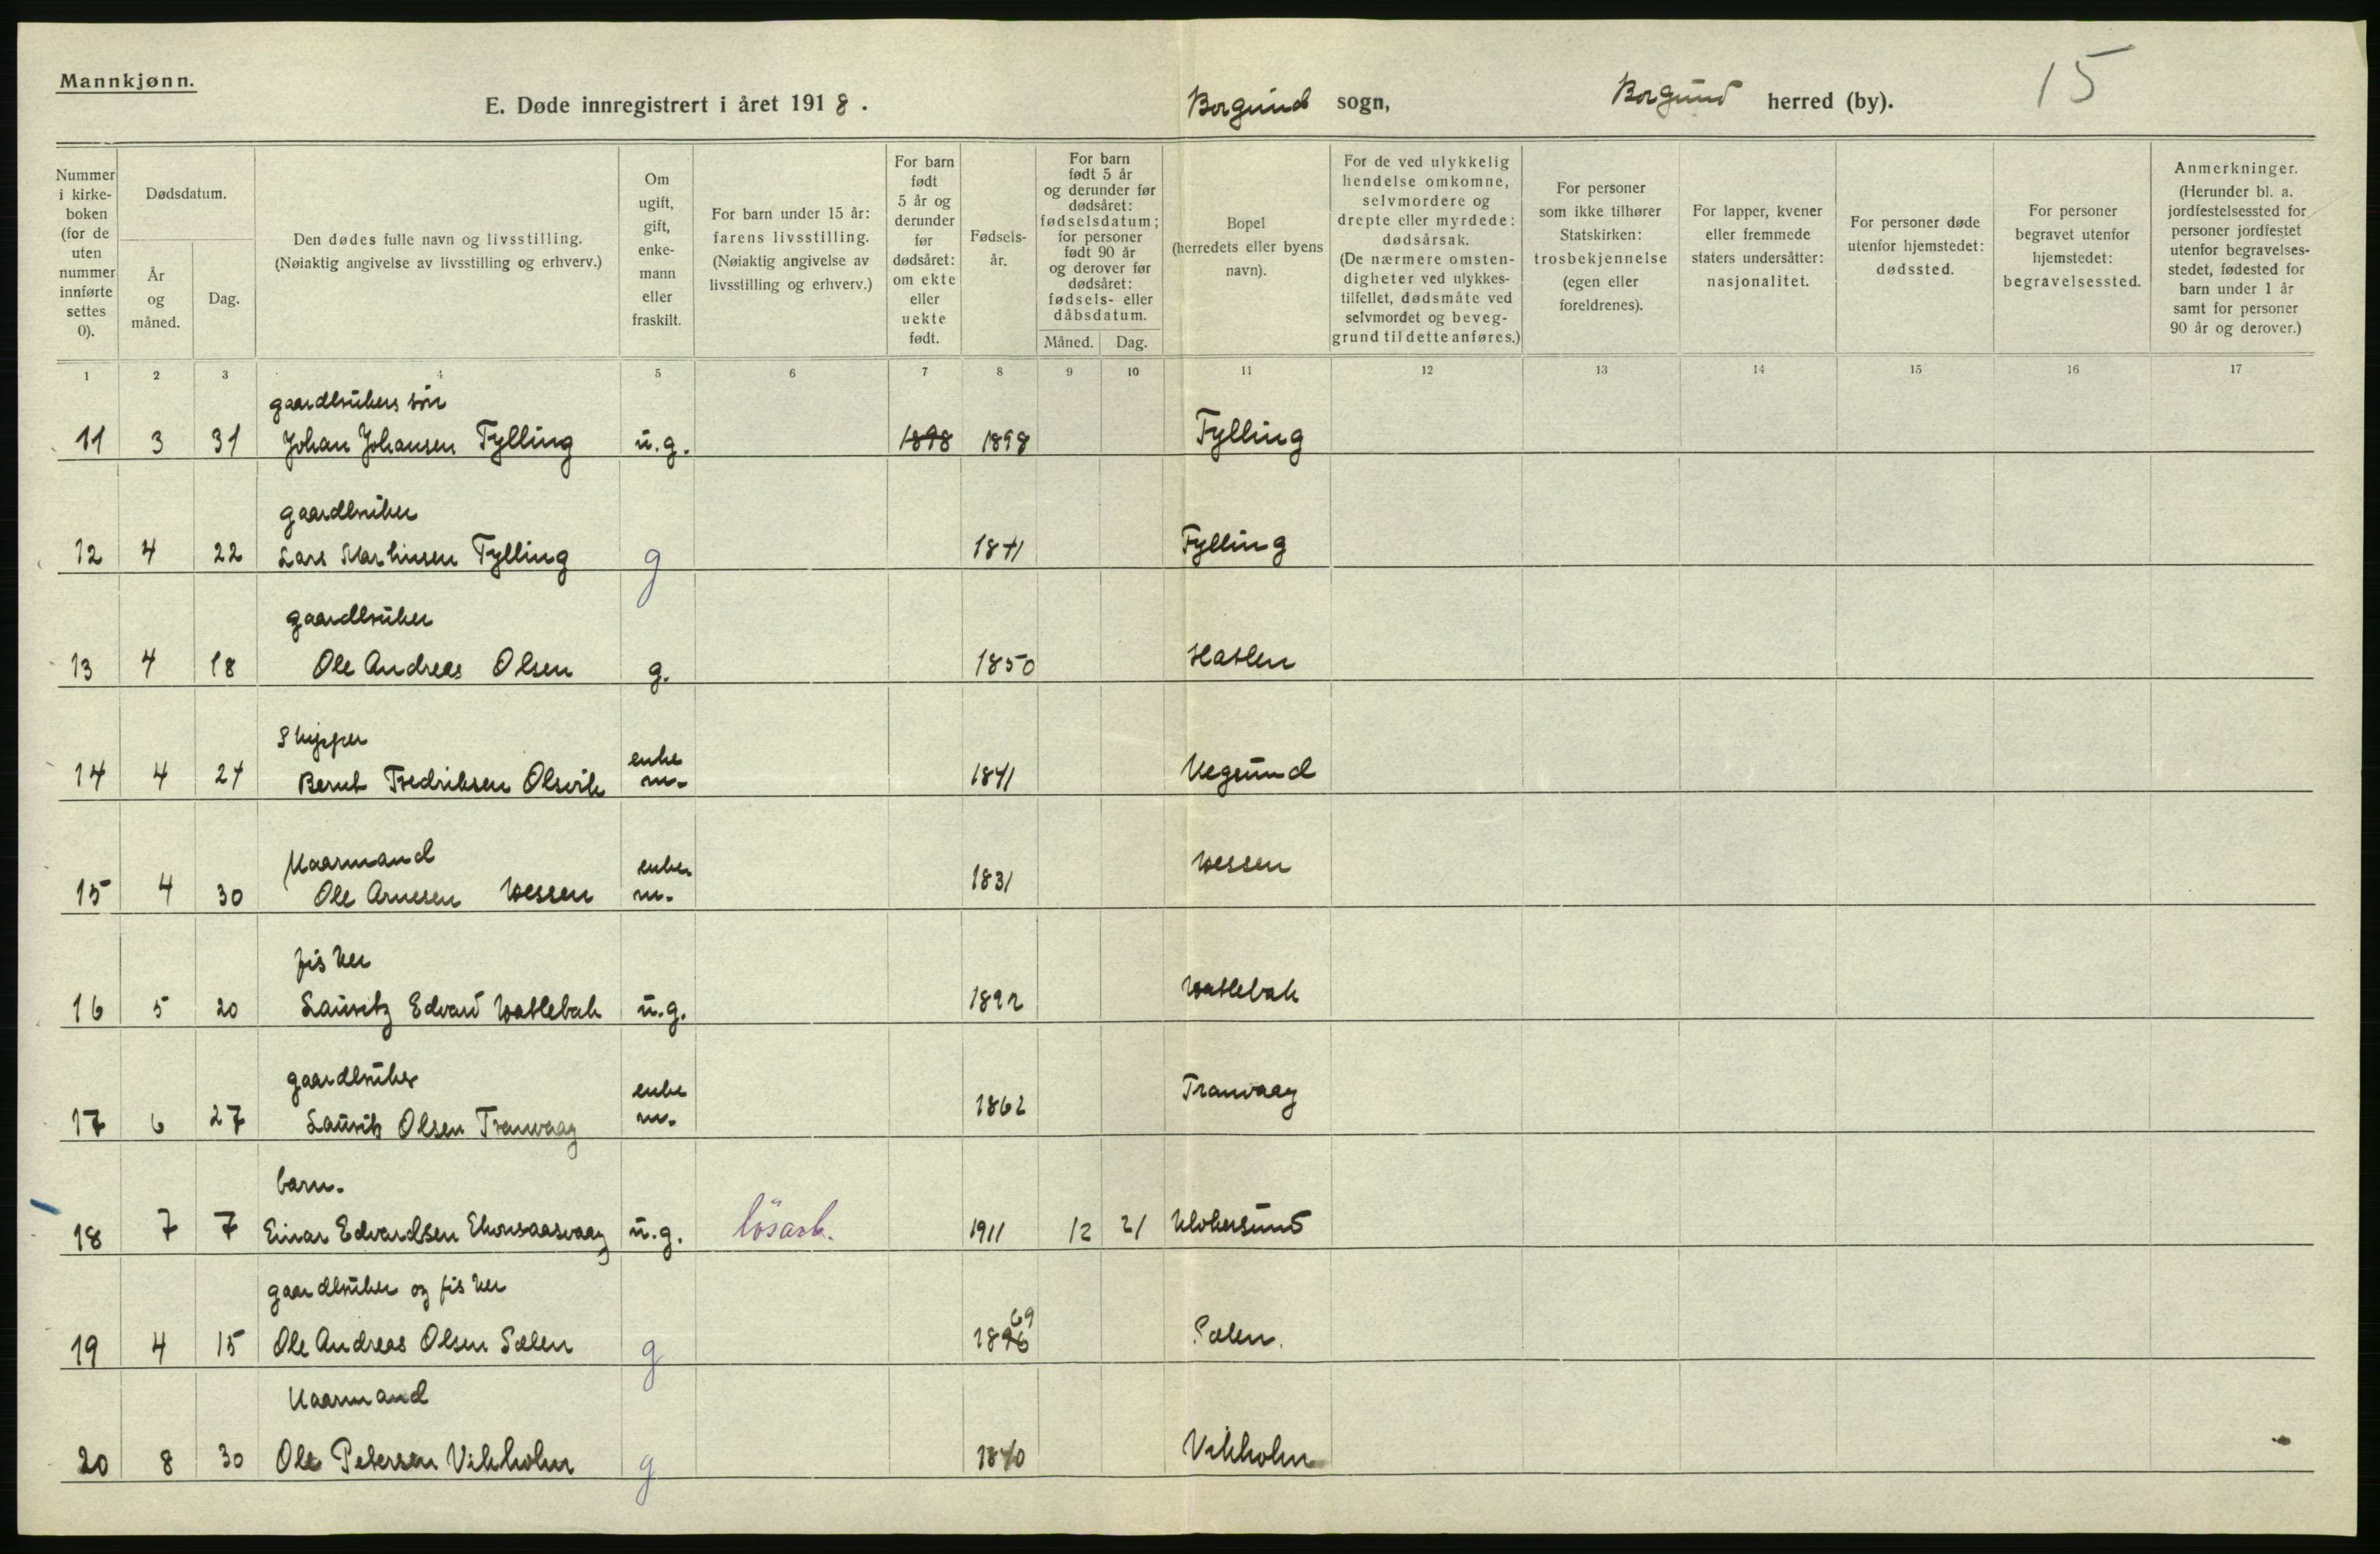 Mannkjønn.
15
E. Døde innregistrert i året 1918. Borgund sogn, Borgund herred (by).
Nummer i kirke-boken (for de uten nummer innførte settes 0).
Dødsdatum.
År og måned.
Dag.
Den dødes fulle navn og livsstilling.
(Nøiaktig angivelse av livsstilling og erhverv.)
Om ugift, gift, enke-mann eller fraskilt.
For barn under 15 år: farens livsstilling. (Nøiaktig angivelse av livsstilling og erhverv.)
For barn født 5 år og derunder før dødsåret: om ekte eller uekte født.
Fødsels-år.
For barn født 5 år og derunder før dødsåret: fødselsdatum; for personer født 90 år og derover før dødsåret: fødsels- eller dåbsdatum.
Måned. Dag.
Bopel (herredets eller byens navn).
For de ved ulykkelig hendelse omkomne, selvmordere og drepte eller myrdede: dødsårsak. (De nærmere omsten-digheter ved ulykkes-tilfellet, dødsmåte ved selvmordet og beveg-grund til dette anføres.)
For personer som ikke tilhører Statskirken: trosbekjennelse (egen eller foreldrenes).
For lapper, kvener eller fremmede staters undersåtter: nasjonalitet.
For personer døde utenfor hjemstedet: dødssted.
For personer begravet utenfor hjemstedet: begravelsessted.
Anmerkninger. (Herunder bl. a. jordfestelsessted for personer jordfestet utenfor begravelses-stedet, fødested for barn under 1 år samt for personer 90 år og derover.)
1 2 3 4 5 6 7 8 9 10 11 12 13 14 15 16 17
gaardbrukers søn
11 3 31 Johan Johansen Tylling u.g. 1898 1898 Tylling
gaardbruker
12 4 22 Lars Martinsen Tylling g 1841 Tylling
gaardbruker
13 4 18 Ole Andreas Olsen g. 1850 Hatlen
Skipper
14 4 24 Bernt Fredriksen Olsvik enke m. 1841 Vegsund
Kaarmand
15 4 30 Ole Arnesen Wessen enke m. 1831 Wessen
fisker
16 5 20 Lauritz Edvard Watlebak u.g. 1892 Watlebak
gaardbruker
17 6 27 Laurits Olsen Tranvaag enke m. 1862 Tranvaag
barn.
18 7 7 Einar Edvardsen u.g. løsarb. 1911 12 21 Klokersund
gaardbruker og fisker
69
19 4 15 Ole Andreas Olsen Sølen g 1896 Sølen.
Kaarmand
20 8 30 Ole Petersen Vikholm g 1840 Vikholm